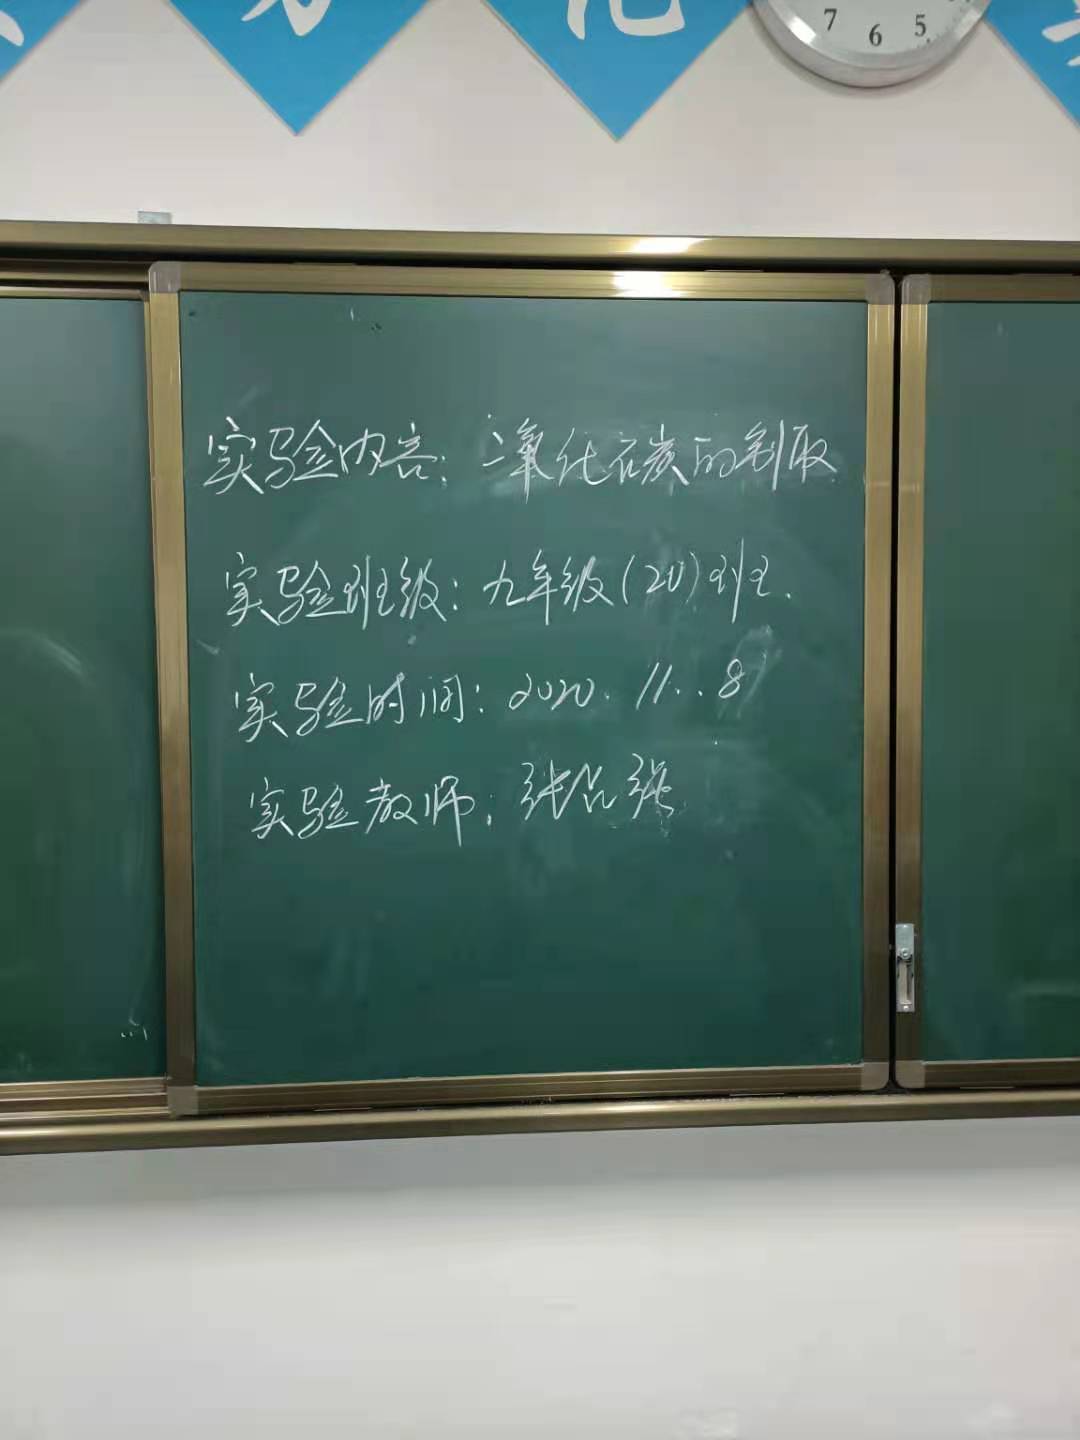 化
7 6 5
实验内容：二氧化碳的制取
实验班级：九年级(20)班.
实验时间：2020.11.8
实验教师：张